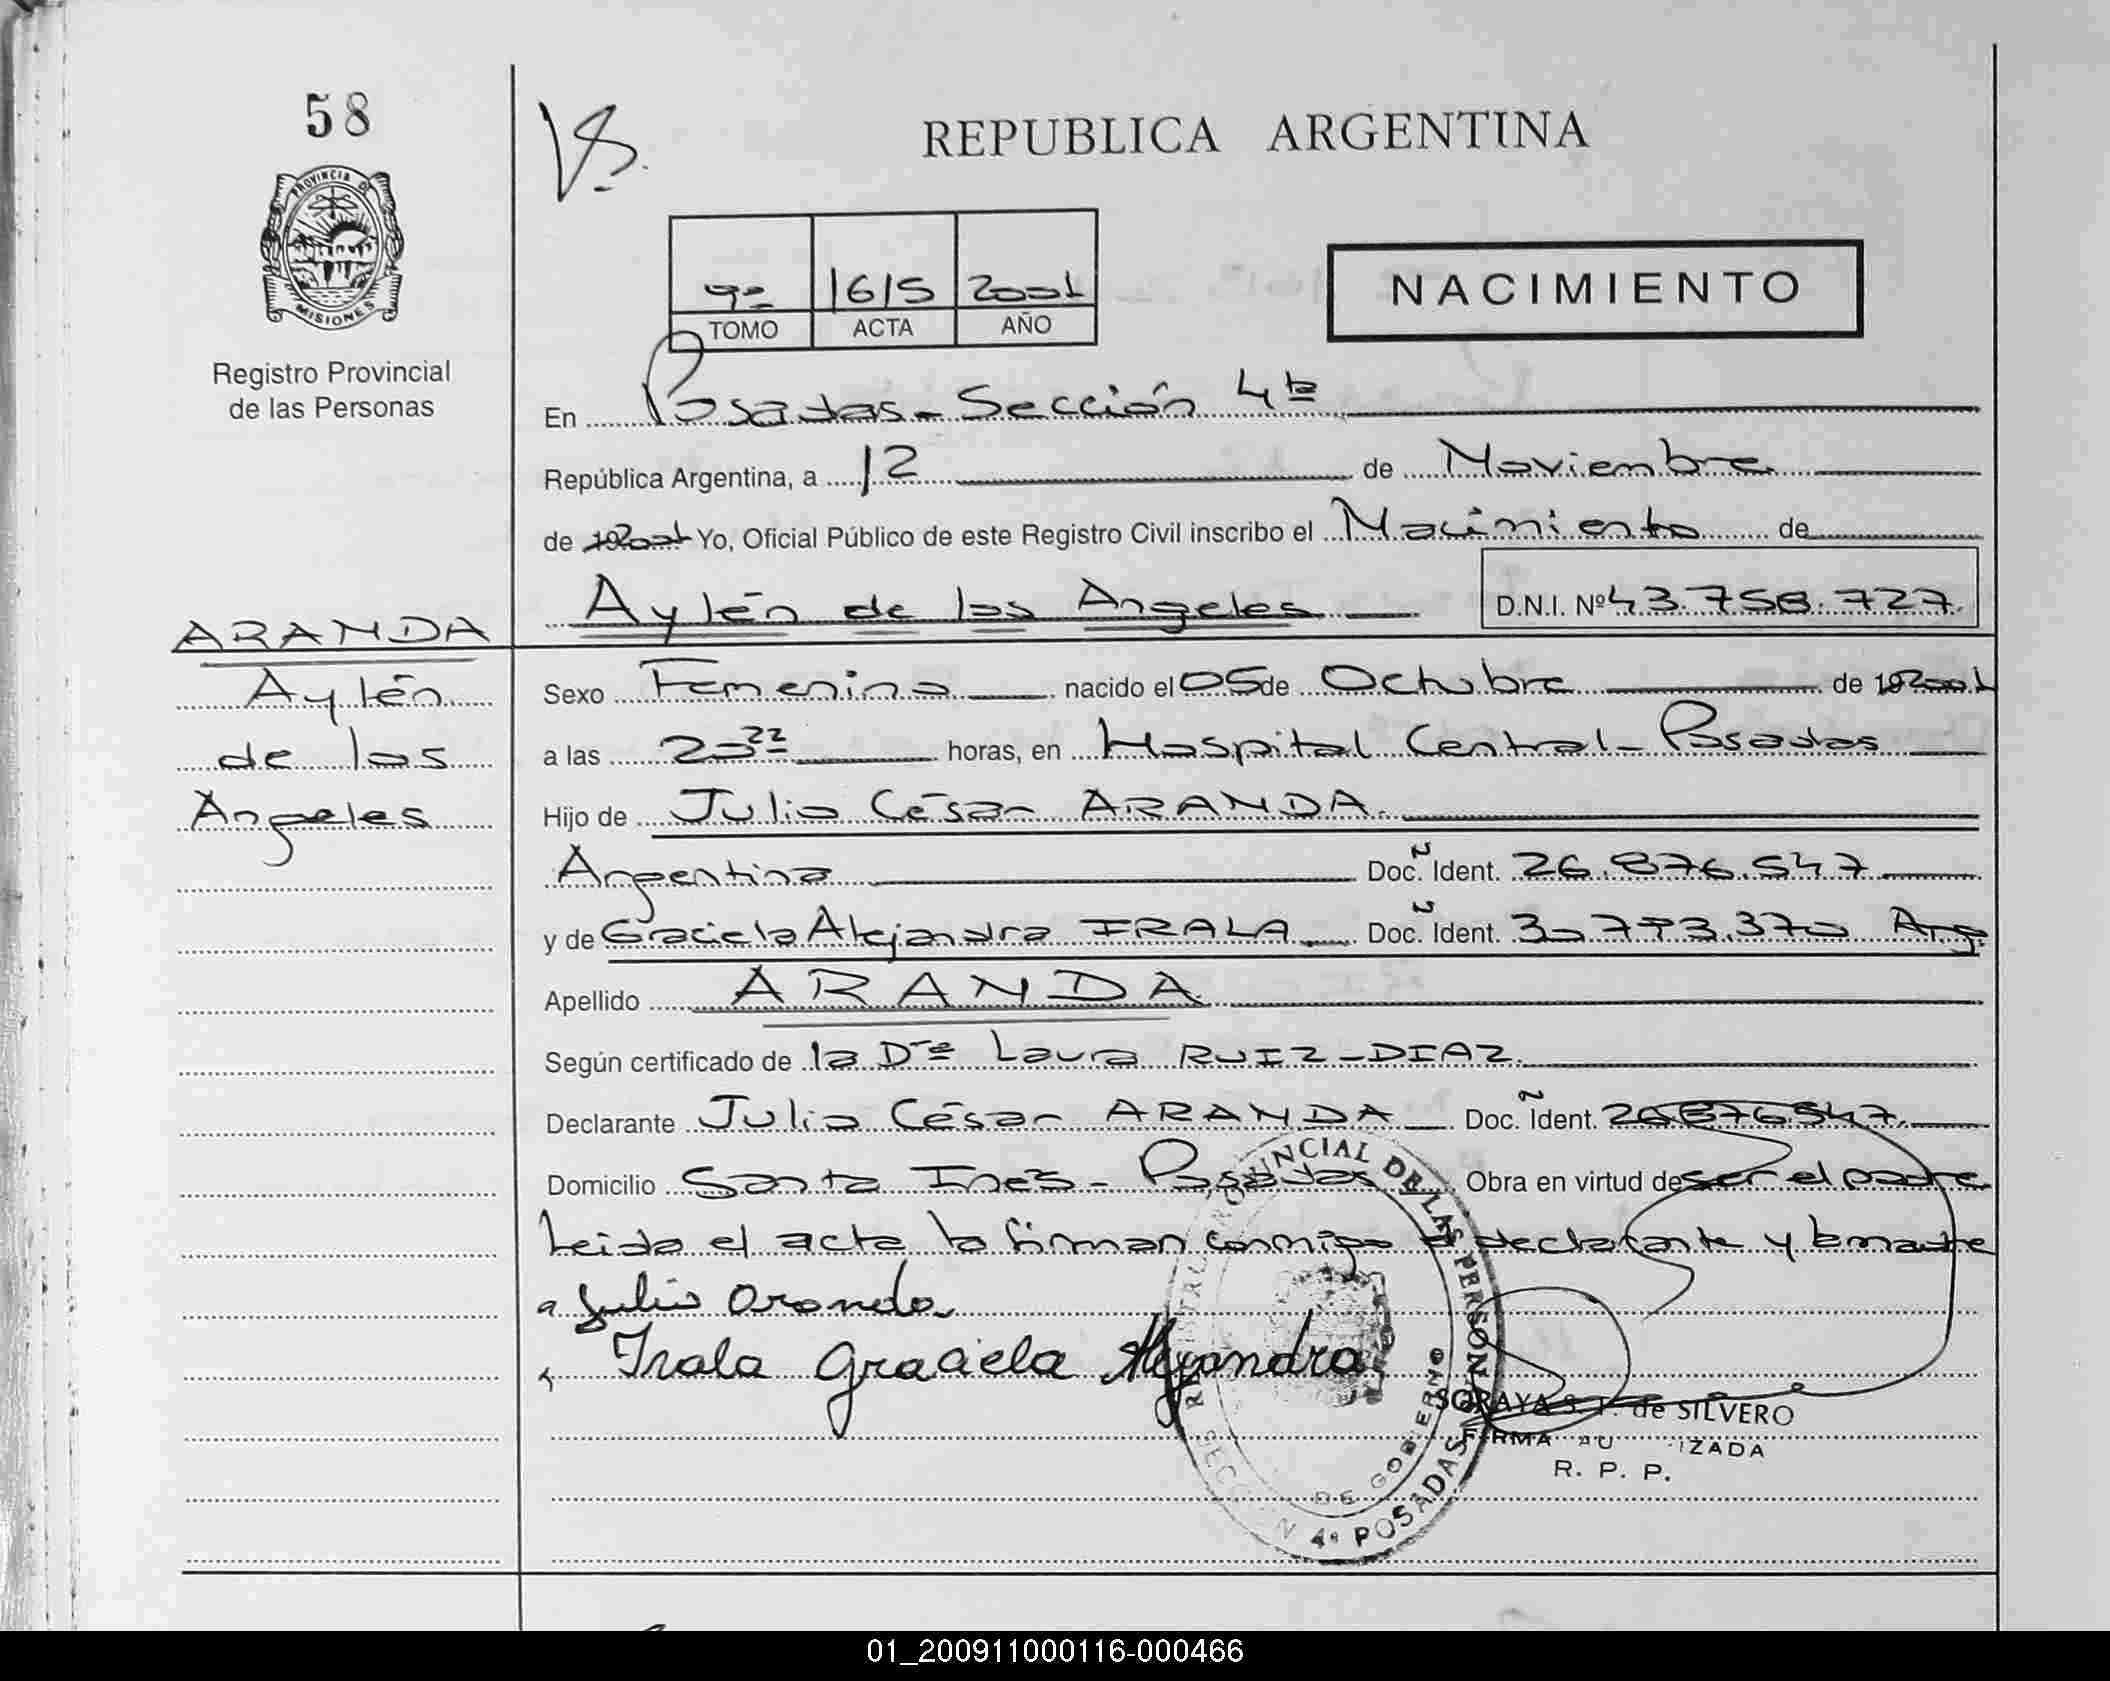 58
PROVINCIA DE
MISIONES
Registro Provincial
de las Personas
REPUBLICA ARGENTINA
1615 2001
TOMO ACTA AÑO
NACIMIENTO
En Posadas - Sección 4ta
República Argentina, a 12 de Noviembre
de 2001 Yo, Oficial Público de este Registro Civil inscribo el Nacimiento de
Aylén de los Angeles D.N.I. Nº 43.758.727
ARANDA
Aylén
de los
Angeles
Sexo Femenino nacido el 05 de Octubre de 2001
a las 20 22 horas, en Hospital Central - Posadas
Hijo de Julio César ARANDA
Argentina Doc. Ident. 26.876.547
y de Graciela Alejandra IRALA Doc. Ident. Arg.
Apellido ARANDA
Según certificado de la Dra Laura RUIZ-DIAZ
Declarante Julio César ARANDA Doc. Ident. 26876547
Domicilio Santa Inés - Posadas Obra en virtud de ser el padre
Leida el acta la firman conmigo el declarante y la madre
a Julio Aranda
Irala Graciela Alejandra
SORAYA S. T. de SILVERO
FIRMA AU IZADA
R. P. P.
PROVINCIAL DE LAS PERSONAS
SECCION 4ª POSADAS
DE GOBIERNO
01_200911000116-000466